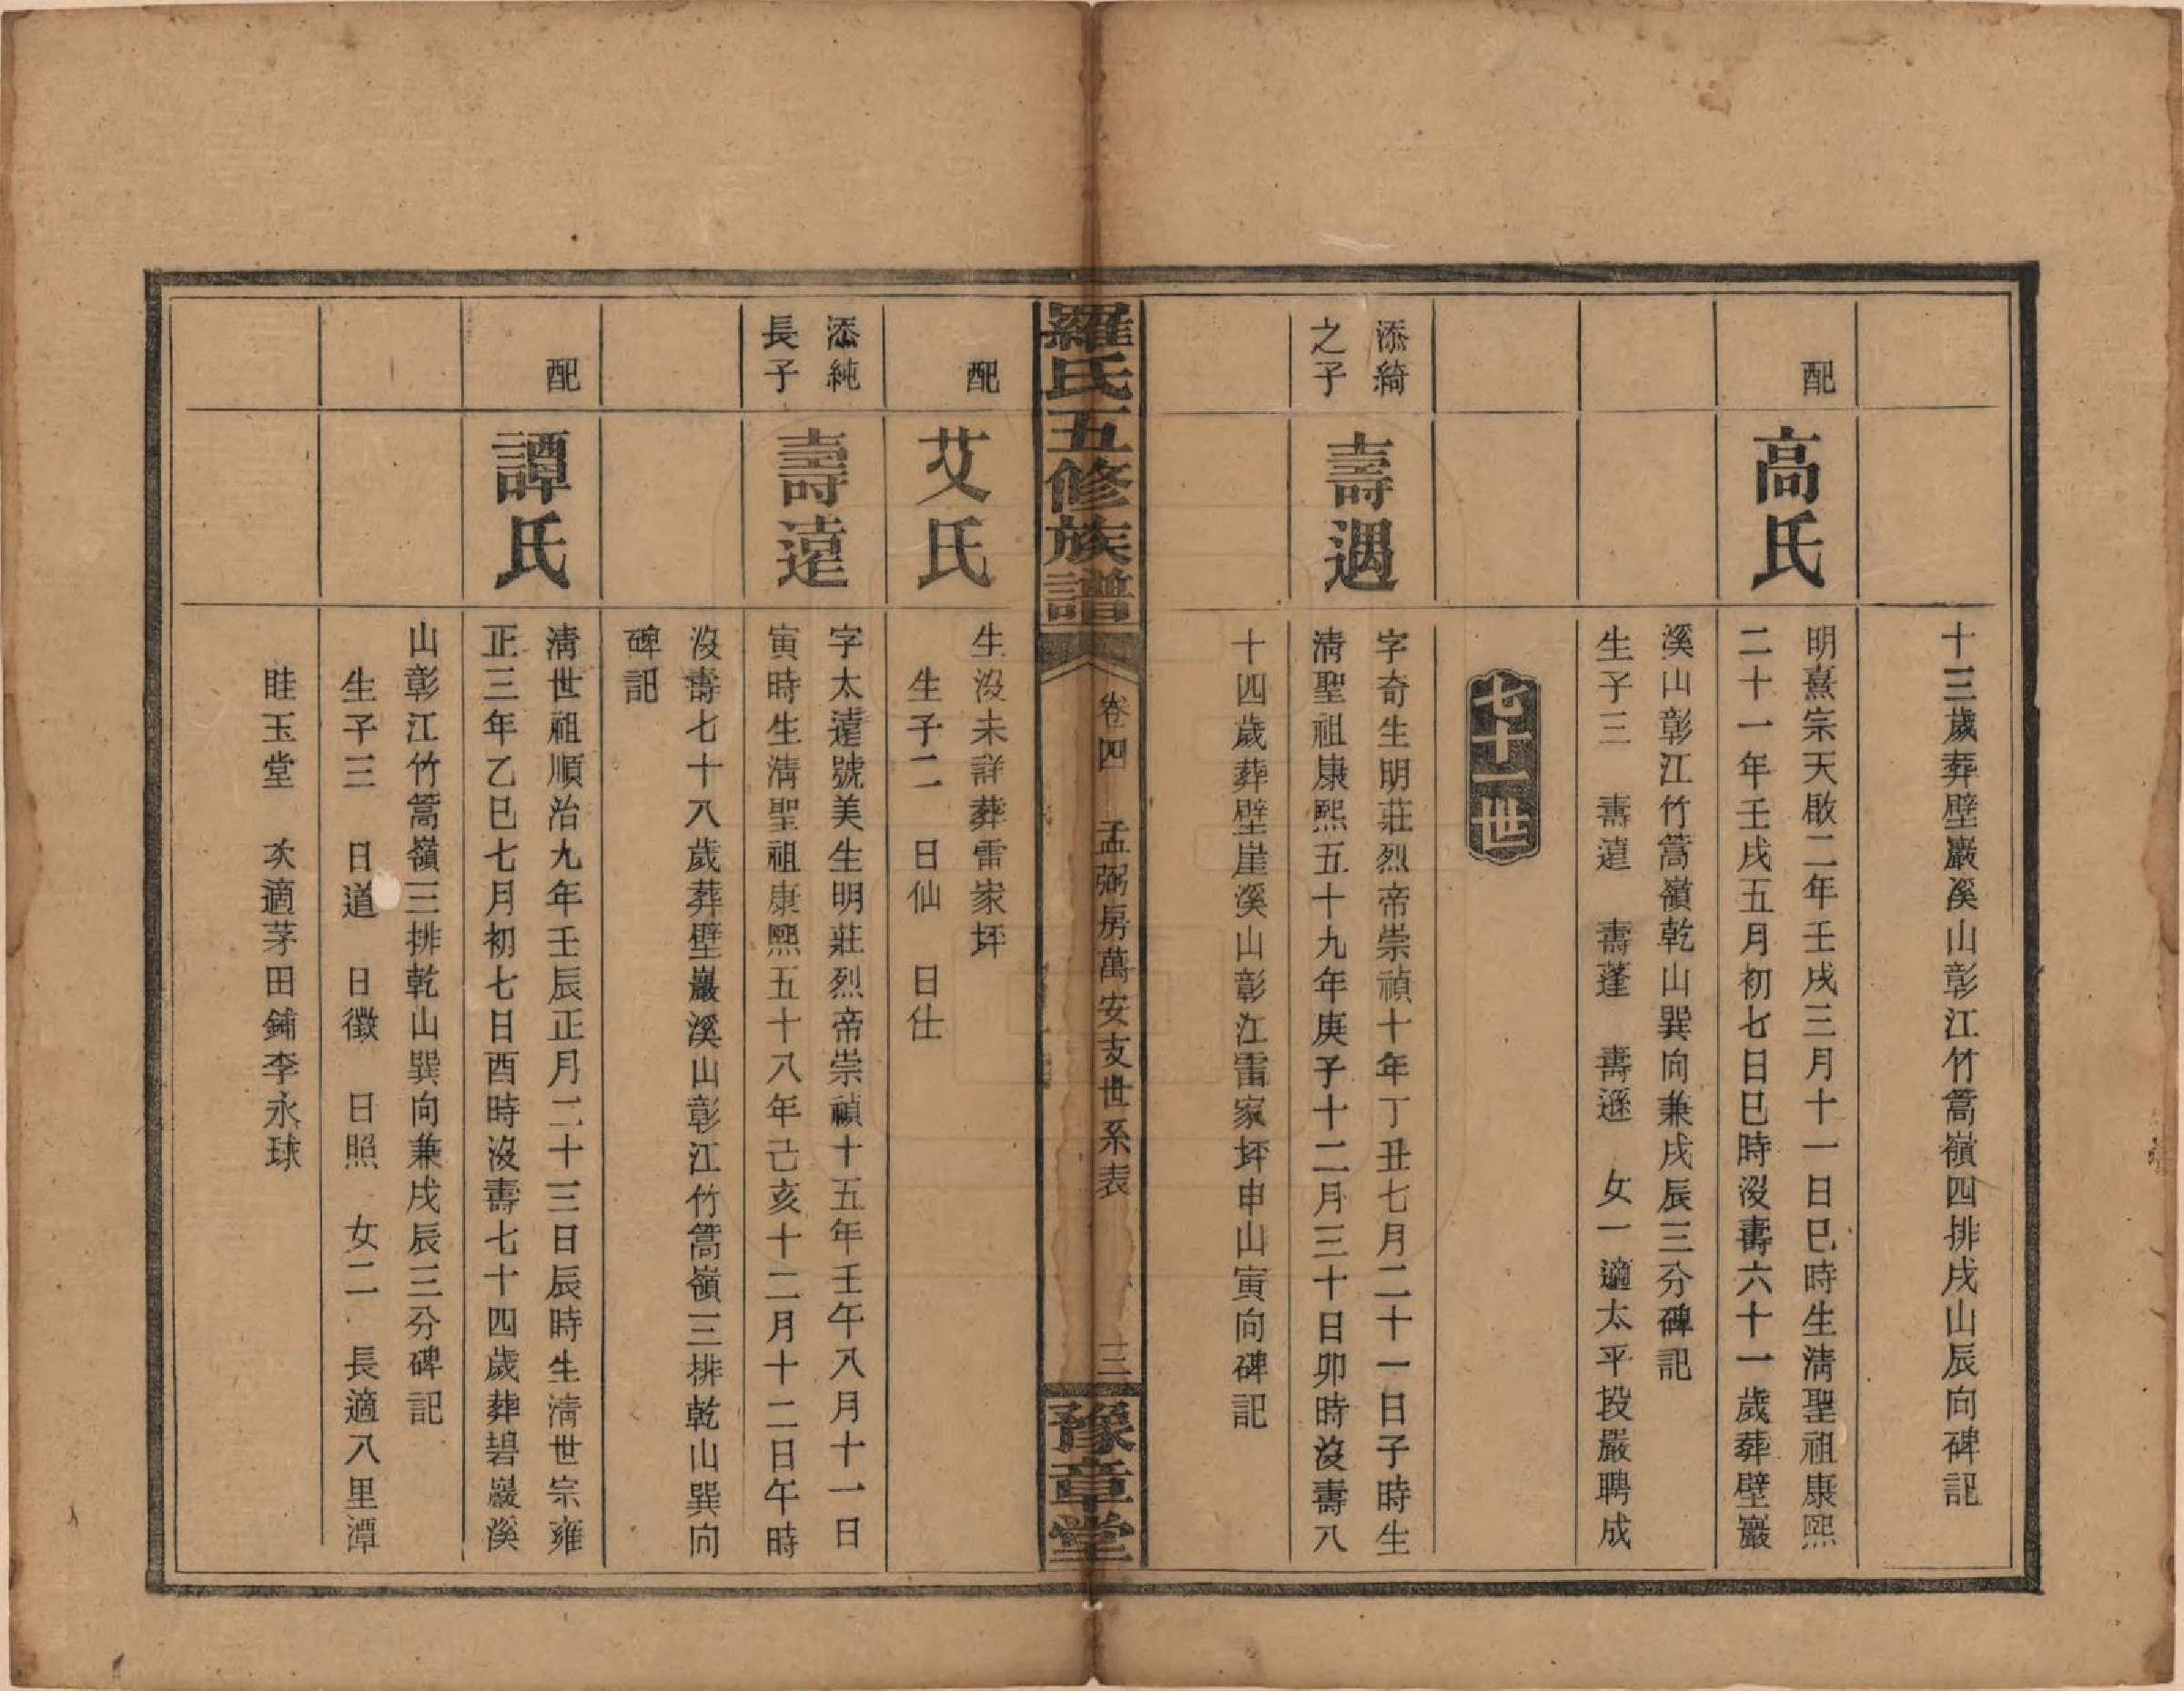 十三歲葬壁巖溪山彰江竹篙嶺四排戌山辰向碑記
配
高氏
明熹宗天啟二年壬戌三月十一日巳時生淸聖祖康熙
二十一年壬戌五月初七日巳時沒壽六十一歲葬壁巖
溪山彰江竹篙嶺乾山巽向兼戌辰三分碑記
生子三　壽遠　壽蓬　壽遜　女一適太平段嚴聘成
七十一世
添綺
之子
壽遇
字奇生明莊烈帝崇禎十年丁丑七月二十一日子時生
淸聖祖康熙五十九年庚子十二月三十日卯時沒壽八
十四歲葬壁崖溪山彰江雷家坪申山寅向碑記
羅氏五修族譜
卷四　孟弼房萬安支世系表　三
豫章堂
配
艾氏
生沒未詳葬雷家坪
生子二　日仙　日仕
添純
長子
壽遠
字太遠號美生明莊烈帝崇禎十五年壬午八月十一日
寅時生淸聖祖康熙五十八年己亥十二月十二日午時
沒壽七十八歲葬壁巖溪山彰江竹篙嶺三排乾山巽向
碑記
配
譚氏
淸世祖順治九年壬辰正月二十三日辰時生淸世宗雍
正三年乙巳七月初七日酉時沒壽七十四歲葬碧巖溪
山彰江竹篙嶺三排乾山巽向兼戌辰三分碑記
生子三　日道　日徵　日照　女二　長適八里潭
眭玉堂　次適茅田鋪李永球